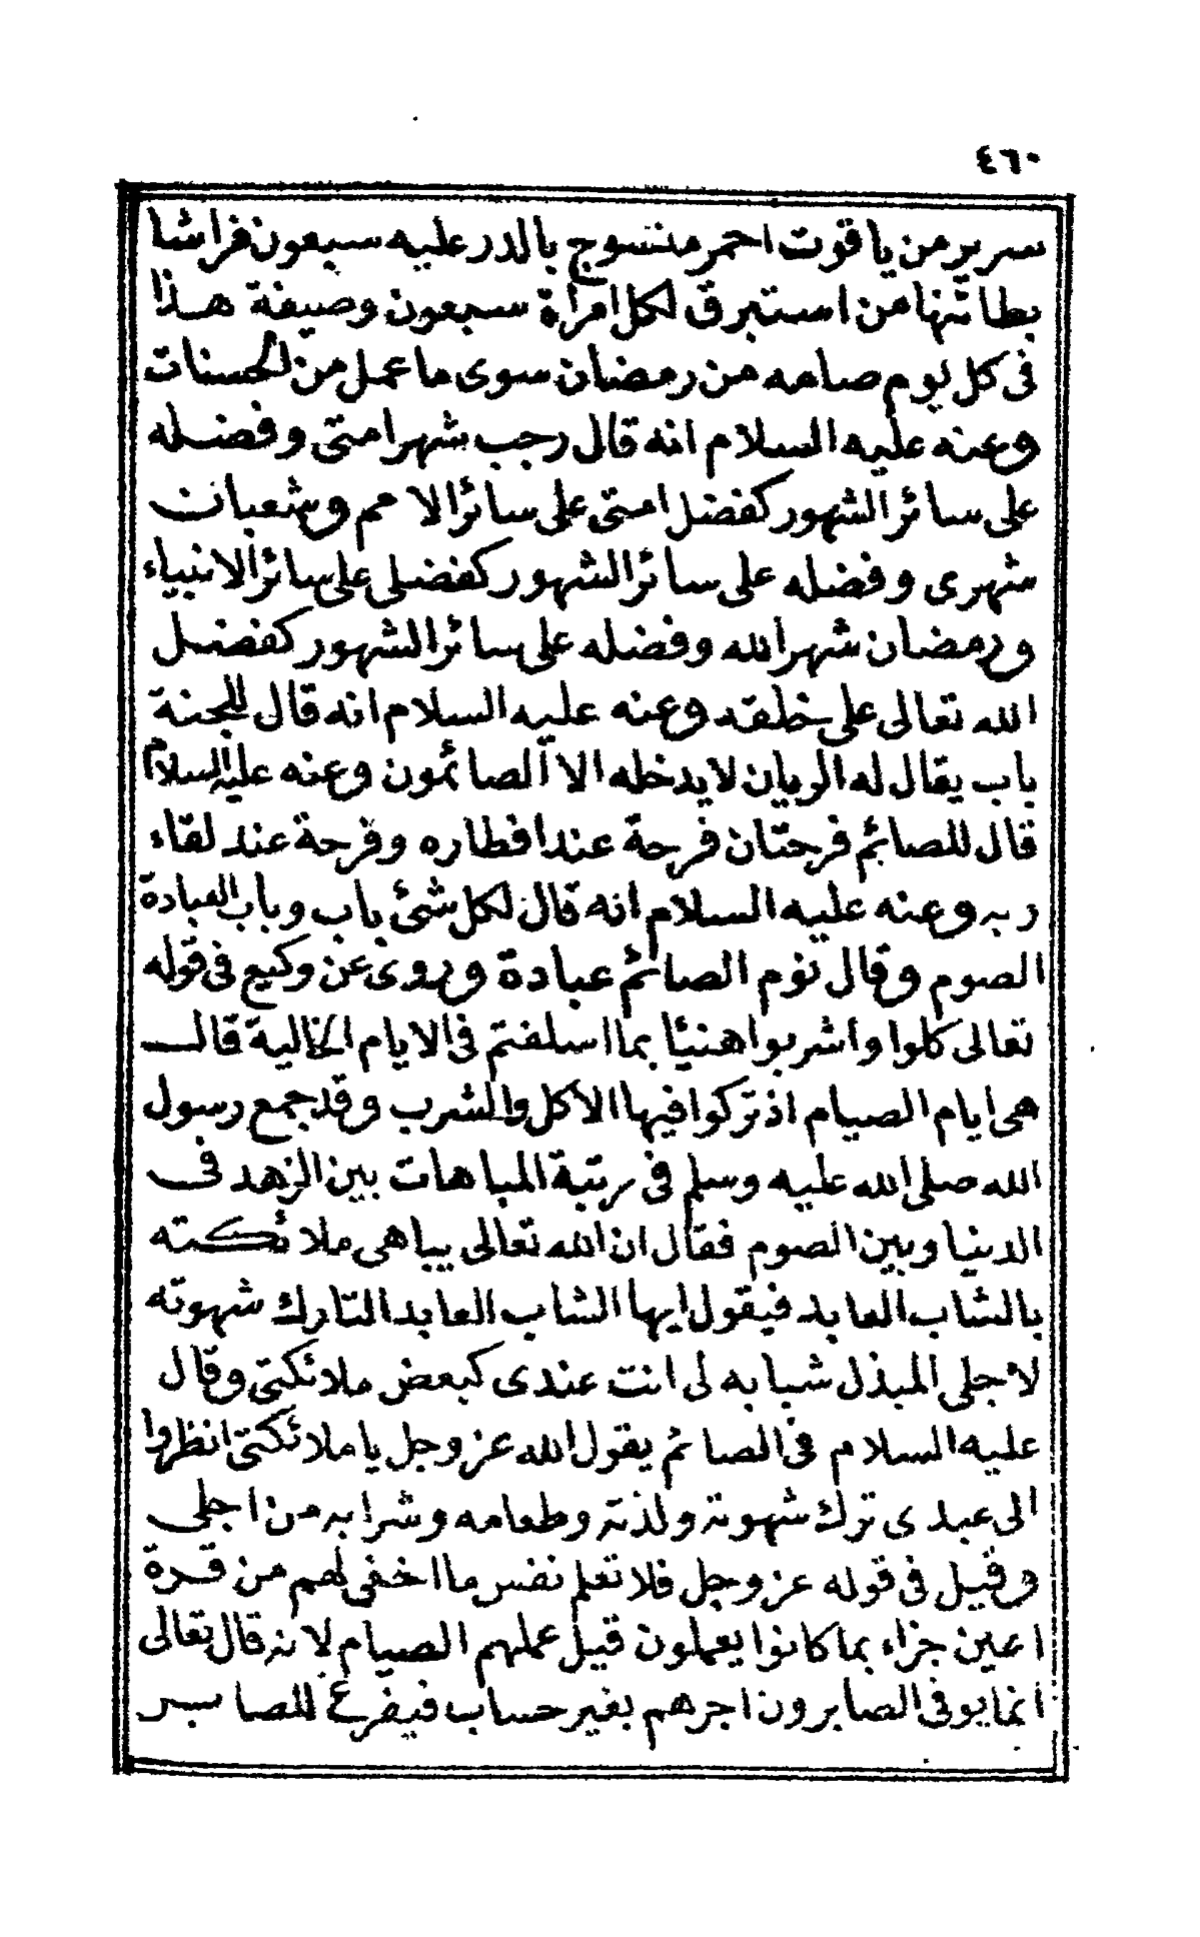 ٤٦٠
سرير من ياقوت احمر منسوج بالدر عليه سبعون فراشا
بطائنها من استبرق لكل امرأة سبعون وصيفة هذا
فى كل يوم صامه من رمضان سوى ما عمل من الحسنات
وعنه عليه السلام انه قال رجب شهر امتى وفضله
على سائر الشهور كفضل امتى على سائر الامم وشعبان
شهرى وفضله على سائر الشهور كفضلى على سائر الانبياء
ورمضان شهر الله وفضله على سائر الشهور كفضل
الله تعالى على خلقه وعنه عليه السلام انه قال للجنة
باب يقال له الريان لا يدخله الا الصائمون وعنه عليه السلام
قال للصائم فرحتان فرحة عند افطاره وفرحة عند لقاء
ربه وعنه عليه السلام انه قال لكل شئ باب وباب العبادة
الصوم وقال نوم الصائم عبادة وروى عن وكيع فى قوله
تعالى كلوا واشربوا هنيئا بما اسلفتم فى الايام الخالية قال
هى ايام الصيام اذ تركوا فيها الاكل والشرب وقد جمع رسول
الله صلى الله عليه وسلم فى رتبة المباهات بين الزهد فى
الدنيا وبين الصوم فقال ان الله تعالى يباهى ملائكته
بالشاب العابد فيقول ايها الشاب العابد التارك شهوته
لاجلى المبذل شبابه لى انت عندى كبعض ملائكتى وقال
عليه السلام فى الصائم يقول الله عز وجل يا ملائكتى انظروا
الى عبدى ترك شهوته ولذته وطعامه وشرابه من اجلى
وقيل فى قوله عز وجل فلا تعلم نفس ما اخفى لهم من قرة
اعين جزاء بما كانوا يعملون قيل عملهم الصيام لانه قال تعالى
انما يوفى الصابرون اجرهم بغير حساب فيفرغ للصابر